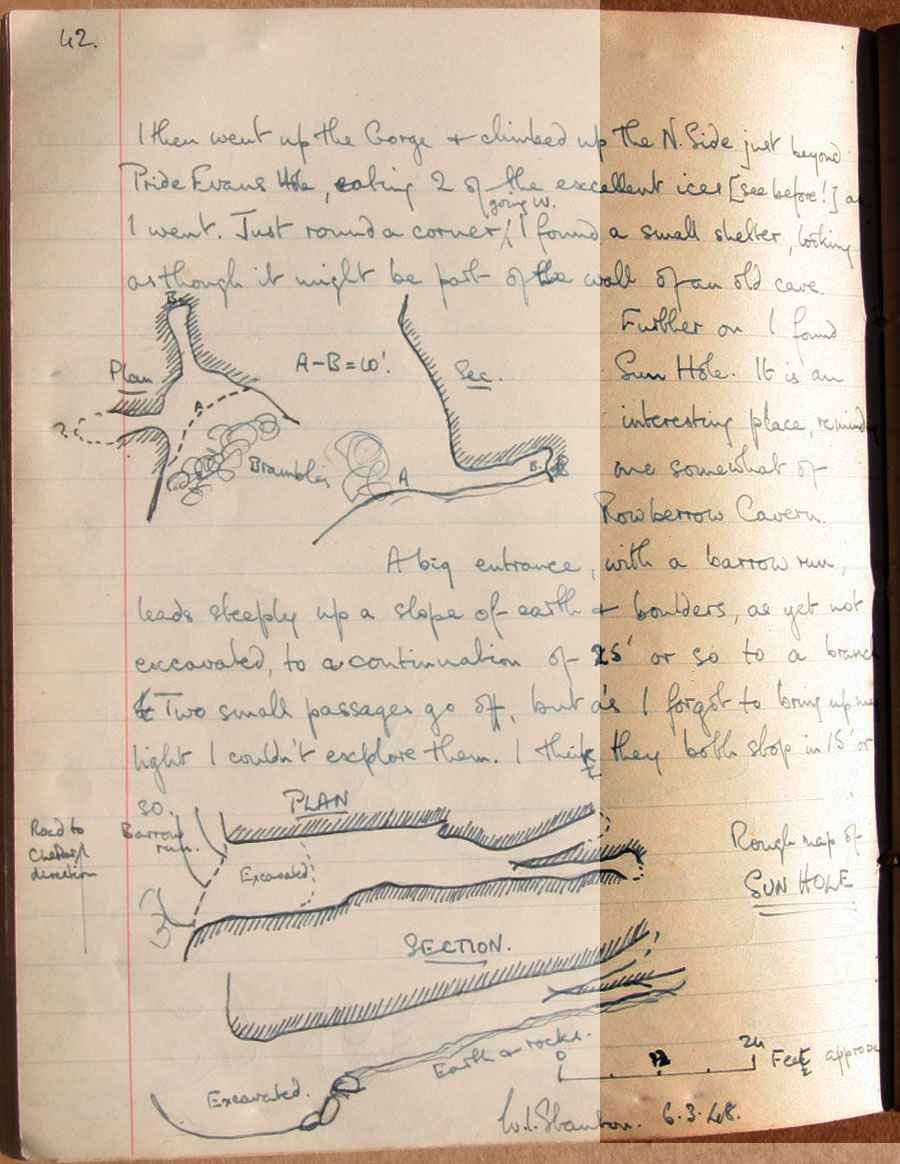 42.
I then went up the Gorge + climbed up the N. Side just beyond
Pride Evans Hole, eating 2 of the excellent ices [see before!] as
going W.
I went. Just round a corner / I found a small shelter, looking
as though it might be part of the wall of an old cave.
B.
Further on I found
Plan
A-B = 10'.
Sec.
Sun Hole. It is an
A
?
interesting place, remind
Brambles
A
B.
one somewhat of
Rowberrow Cavern.
A big entrance, with a barrow run,
leads steeply up a slope of earth + boulders, as yet not
excavated, to a continuation of 25' or so to a branch
Two small passages go off, but as I forgot to bring up my
light I couldn't explore them. I think they both stop in 15' or
so.
PLAN
Road to
Cheddar
direction
Barrow
run.
Excavated
Rough map of
SUN HOLE
SECTION.
?
Earth + rocks.
Excavated.
0 12 24 Feet approx
W.I. Stanton. 6.3.48.